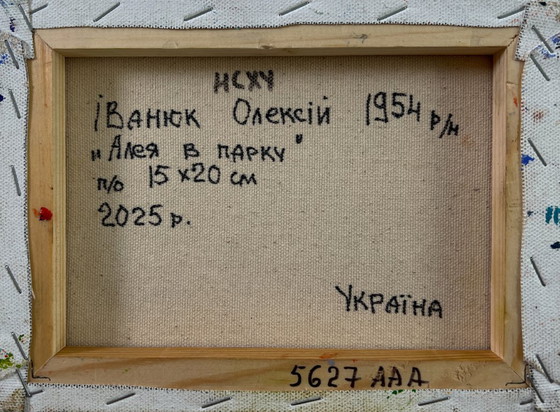 НСХУ
Іванюк Олексій 1954 р/н
"Алея в парку"
п/о 15x20 см
2025 р.
Україна
5627 ААА